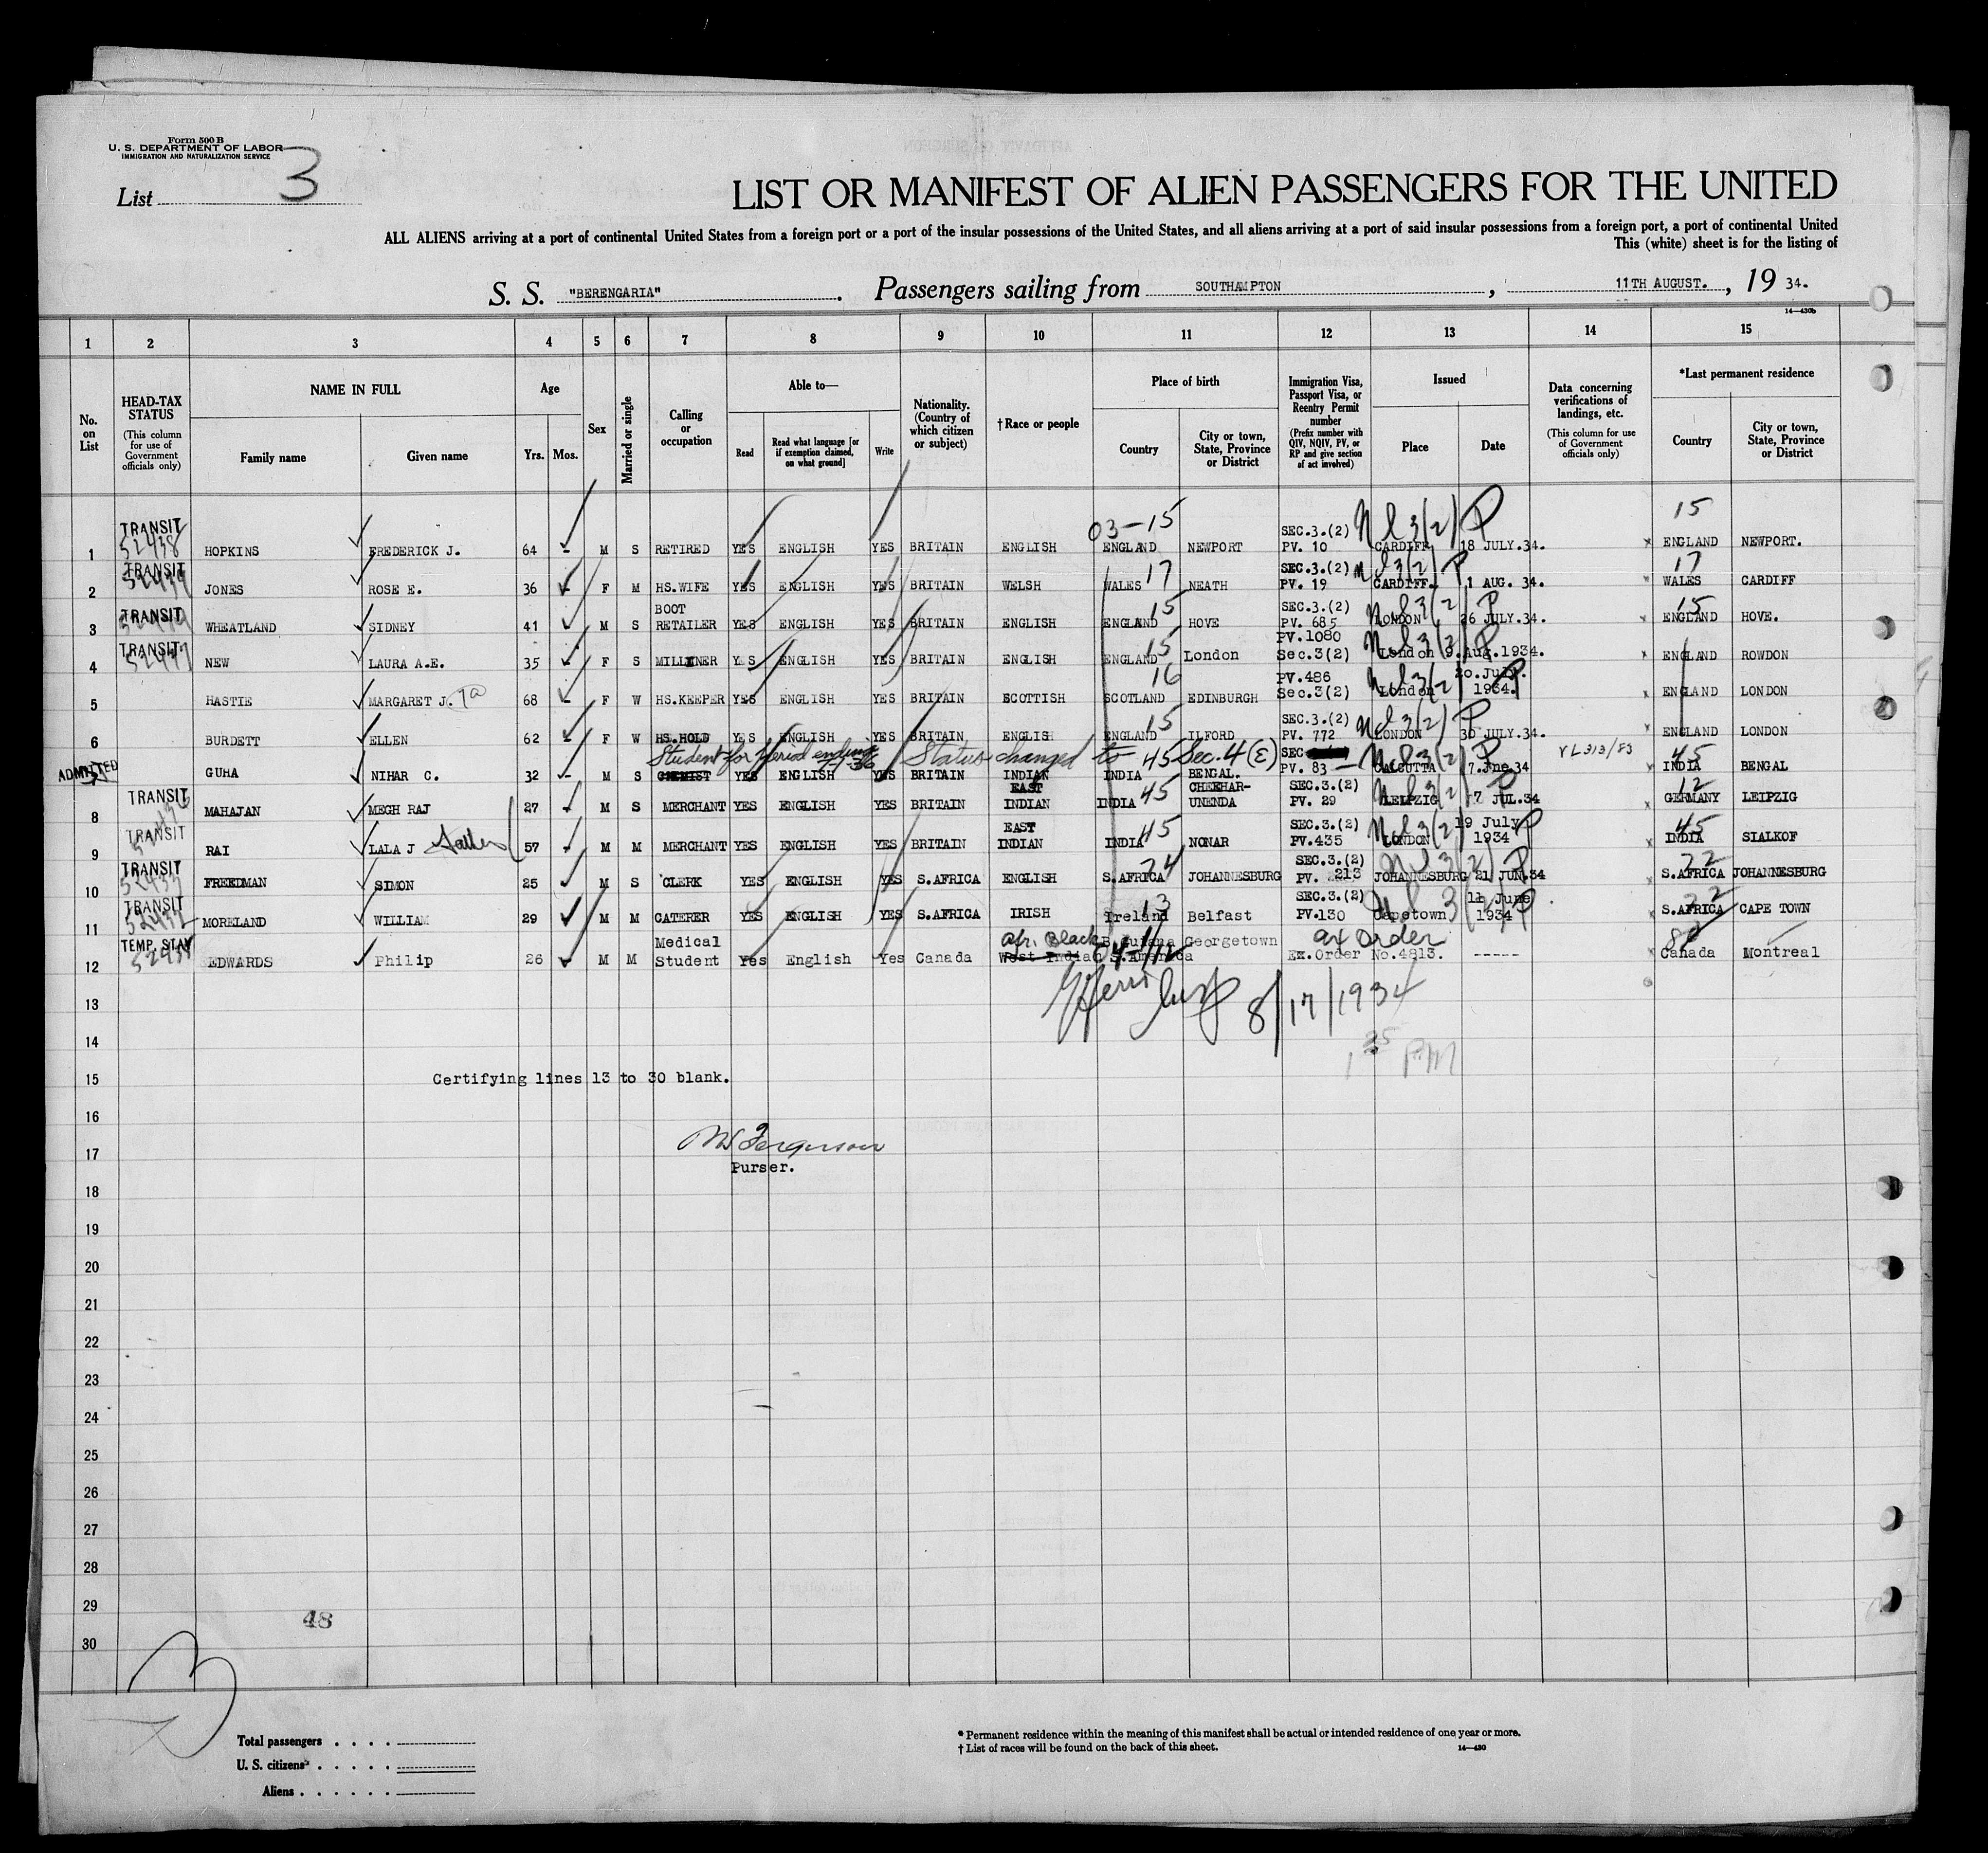 Form 500 B
U. S. DEPARTMENT OF LABOR
IMMIGRATION AND NATURALIZATION SERVICE
List 3
LIST OR MANIFEST OF ALIEN PASSENGERS FOR THE UNITED
ALL ALIENS arriving at a port of continental United States from a foreign port or a port of the insular possessions of the United States, and all aliens arriving at a port of said insular possessions from a foreign port, a port of continental United
This (white) sheet is for the listing of
S. S. "BERENGARIA". Passengers sailing from SOUTHAMPTON, 11TH AUGUST., 19 34.
14—430b
1 2 3 4 5 6 7 8 9 10 11 12 13 14 15
No. on List
HEAD-TAX STATUS (This column for use of Government officials only)
NAME IN FULL
Family name Given name
Age
Yrs. Mos.
Sex
Married or single
Calling or occupation
Able to—
Read
Read what language [or if exemption claimed, on what ground]
Write
Nationality. (Country of which citizen or subject)
†Race or people
Place of birth
Country
City or town, State, Province or District
Immigration Visa, Passport Visa, or Reentry Permit number (Prefix number with QIV, NQIV, PV, or RP and give section of act involved)
Issued
Place Date
Data concerning verifications of landings, etc. (This column for use of Government officials only)
*Last permanent residence
Country
City or town, State, Province or District
03-15 15
1 TRANSIT 52438 HOPKINS FREDERICK J. 64 - M S RETIRED YES ENGLISH YES BRITAIN ENGLISH ENGLAND NEWPORT SEC.3.(2) PV. 10 CARDIFF 18 JULY.34. ENGLAND NEWPORT.
2 TRANSIT JONES ROSE E. 36 - F M HS.WIFE YES ENGLISH YES BRITAIN WELSH WALES 17 NEATH SEC.3.(2) PV. 19 CARDIFF. 1 AUG. 34. 17 WALES CARDIFF
3 TRANSIT WHEATLAND SIDNEY 41 - M S BOOT RETAILER YES ENGLISH YES BRITAIN ENGLISH ENGLAND 15 HOVE SEC.3.(2) PV. 685 LONDON 26 JULY.34. 15 ENGLAND HOVE.
4 TRANSIT NEW LAURA A.E. 35 - F S MILLINER YES ENGLISH YES BRITAIN ENGLISH ENGLAND 15 London PV.1080 Sec.3(2) London 9.Aug.1934. ENGLAND ROWDON
5 HASTIE MARGARET J. 68 - F W HS.KEEPER YES ENGLISH YES BRITAIN SCOTTISH SCOTLAND 16 EDINBURGH PV.486 Sec.3(2) London 20.July. 1934. ENGLAND LONDON
6 BURDETT ELLEN 62 - F W HS.HOLD YES ENGLISH YES BRITAIN ENGLISH ENGLAND 15 ILFORD SEC.3.(2) PV. 772 LONDON 30 JULY.34. ENGLAND LONDON
Student for period ending Status changed to Sec. 4 (E)
7 ADMITTED GUHA NIHAR C. 32 - M S CHEMIST YES ENGLISH YES BRITAIN INDIAN INDIA 45 BENGAL. SEC PV. 83 CALCUTTA 7.Jne.34 45 INDIA BENGAL
8 TRANSIT MAHAJAN MEGH RAJ 27 - M S MERCHANT YES ENGLISH YES BRITAIN EAST INDIAN INDIA 45 CHEKHAR-UNENDA SEC.3.(2) PV. 29 LEIPZIG 17 JUL.34 12 GERMANY LEIPZIG
9 TRANSIT RAI LALA J 57 - M M MERCHANT YES ENGLISH YES BRITAIN EAST INDIAN INDIA 45 NONAR SEC.3.(2) PV.435 LONDON 19 July 1934 45 INDIA SIALKOF
10 TRANSIT FREEDMAN SIMON 25 M S CLERK YES ENGLISH YES S.AFRICA ENGLISH S.AFRICA JOHANNESBURG SEC.3.(2) PV. 213 JOHANNESBURG 21 JUN.34 22 S.AFRICA JOHANNESBURG
11 TRANSIT MORELAND WILLIAM 29 M M CATERER YES ENGLISH YES S.AFRICA IRISH Ireland 13 Belfast SEC.3.(2) PV.130 Capetown 11 June 1934 S.AFRICA CAPE TOWN
12 TEMP. STAY EDWARDS Philip 26 - M M Medical Student Yes English Yes Canada Afr. Black West Indian B.Guiana S.America Georgetown Ex.Order No.4813. ----- Canada Montreal
13 8/17/1934
14 PM
15 Certifying lines 13 to 30 blank.
16
17 Ferguson
Purser.
18
19
20
21
22
23
24
25
26
27
28
29 48
30
Total passengers
U. S. citizens
Aliens
* Permanent residence within the meaning of this manifest shall be actual or intended residence of one year or more.
† List of races will be found on the back of this sheet. 14—430